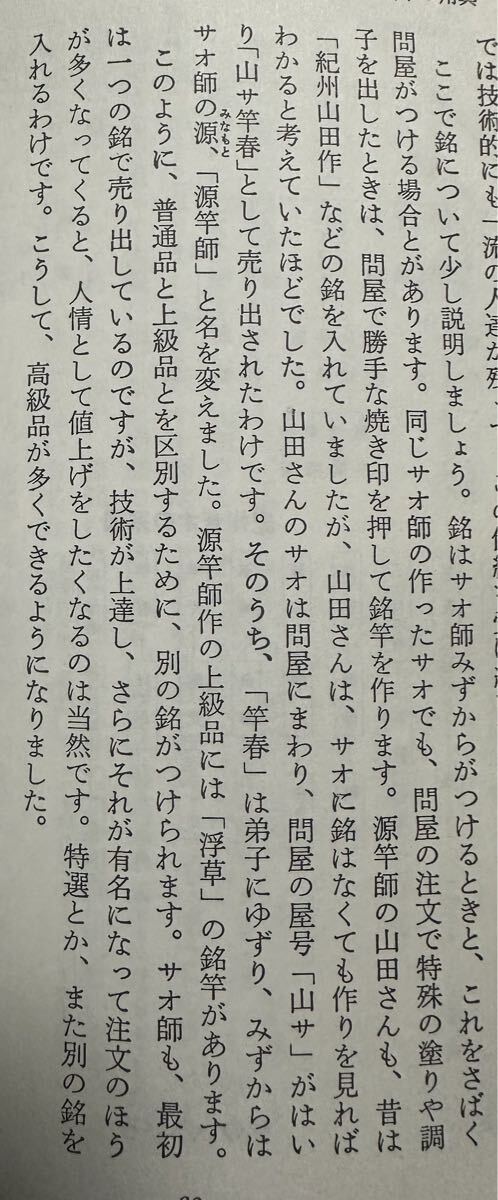 では技術的にも一流の人達が残
ここで銘について少し説明しましょう。銘はサオ師みずからがつけるときと、これをさばく
問屋がつける場合とがあります。同じサオ師の作ったサオでも、問屋の注文で特殊の塗りや調
子を出したときは、問屋で勝手な焼き印を押して銘竿を作ります。源竿師の山田さんも、昔は
「紀州山田作」などの銘を入れていましたが、山田さんは、サオに銘はなくても作りを見れば
わかると考えていたほどでした。山田さんのサオは問屋にまわり、問屋の屋号「山サ」がはい
り「山サ竿春」として売り出されたわけです。そのうち、「竿春」は弟子にゆずり、みずからは
サオ師の源、「源竿師」と名を変えました。源竿師作の上級品には「浮草」の銘竿があります。
みなもと
このように、普通品と上級品とを区別するために、別の銘がつけられます。サオ師も、最初
は一つの銘で売り出しているのですが、技術が上達し、さらにそれが有名になって注文のほう
が多くなってくると、人情として値上げをしたくなるのは当然です。特選とか、また別の銘を
入れるわけです。こうして、高級品が多くできるようになりました。